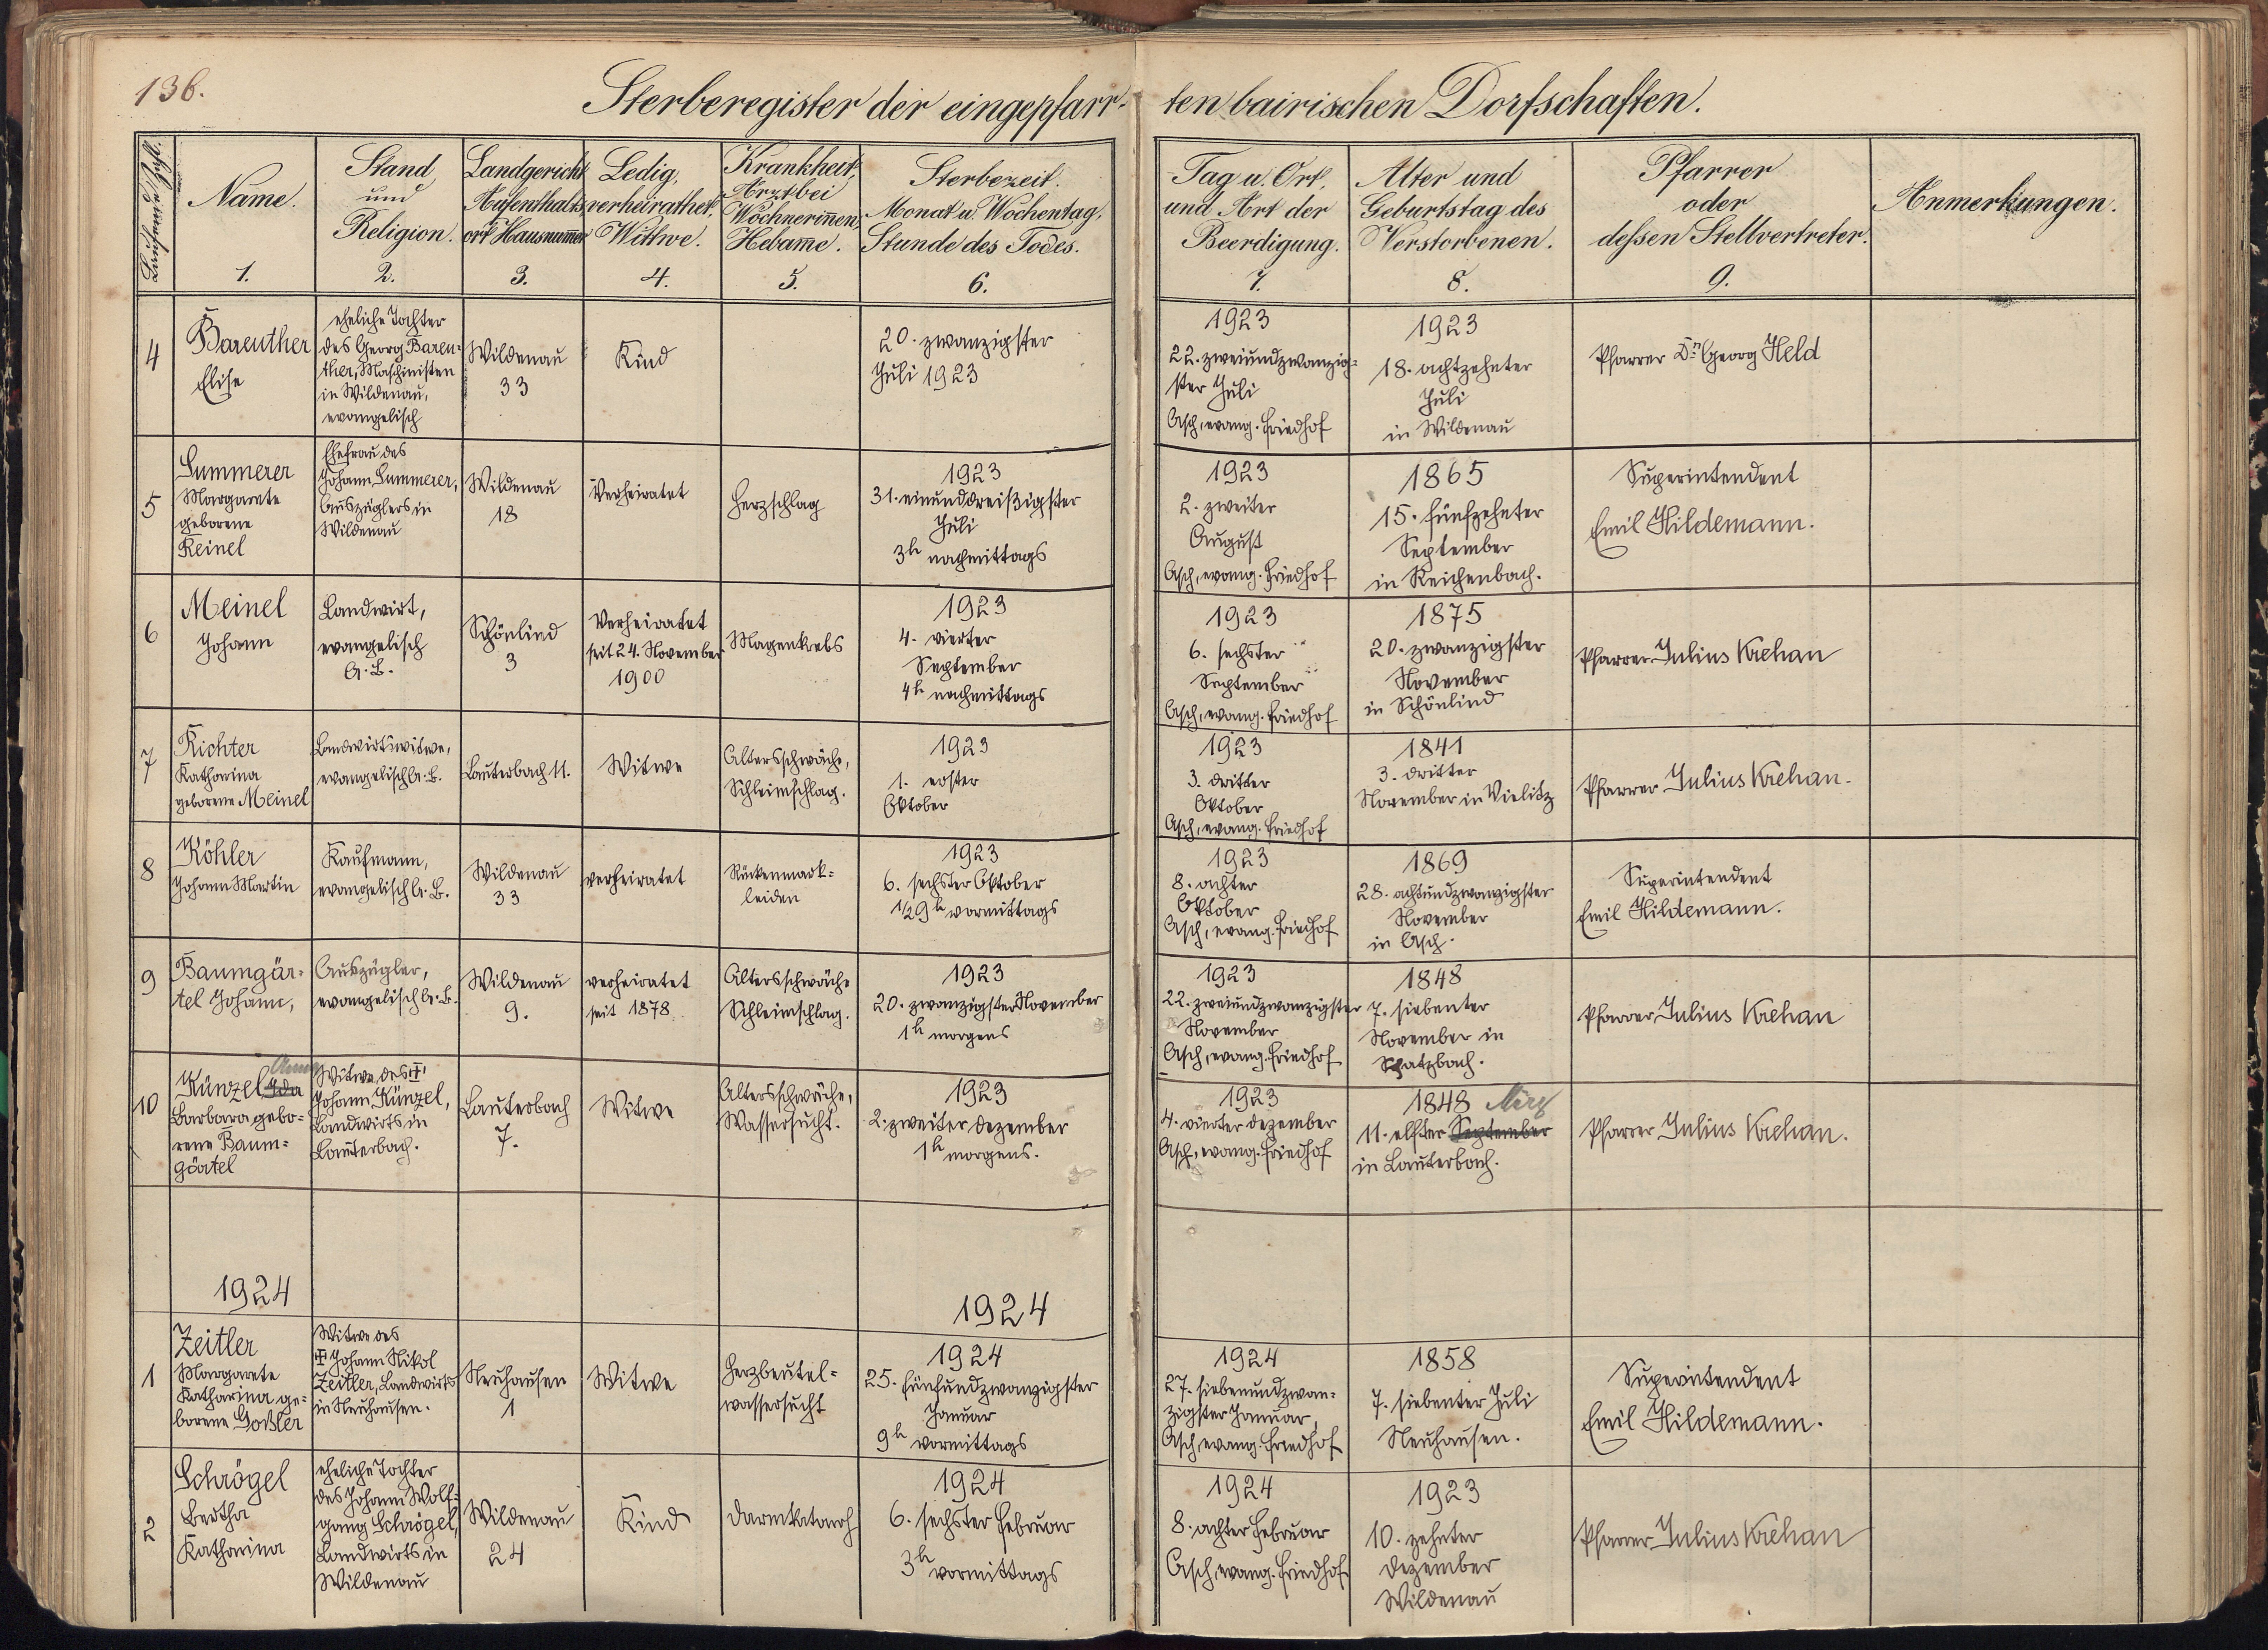 136.
Sterberegister der eingepfarr-
ten bairischen Dorfschaften.
Laufende Zahl.
Name.
1.
Stand
und
Religion.
2.
Landgericht
Aufenthalts-
ort Hausnum̅er
3.
Ledig,
verheirathet,
Wittwe.
4.
Krankheit,
Arzt bei
Wöchnerin̅en,
Hebam̅e.
5.
Sterbezeit.
Monat u. Wochentag.
Stunde des Todes.
6.
Tag u. Ort,
und Art der
Beerdigung.
7.
Alter und
Geburtstag des
Verstorbenen.
8.
Pfarrer
oder
dessen Stellvertreter.
9.
Anmerkungen.
4
Bareuther
Elise
eheliche Tochter
des Georg Bareu-
ther, Maschinisten
in Wildenau,
evangelisch
Wildenau
33
Kind
20. zwanzigster
Juli 1923
1923
22. zweiundzwanzig-
ster Juli
Asch, evang. Friedhof
1923
18. achtzehnter
Juli
in Wildenau
Pfarrer Dr. Georg Held
5
Summerer
Margarete
geborene
Reinel
Ehefrau des
Johann Summerer,
Auszüglers in
Wildenau
Wildenau
18
Verheiratet
Herzschlag
1923
31. einunddreißigster
Juli
3h nachmittags
1923
2. zweiter
August
Asch, evang. Friedhof
1865
15. fünfzehnter
September
in Reichenbach.
Superintendent
Emil Hildemann.
6
Meinel
Johann
Landwirt,
evangelisch
A. B.
Schönlind
3
Verheiratet
seit 24. November
1900
Magenkrebs
1923
4. vierter
September
4h nachmittags
1923
6. sechster
September
Asch, evang. Friedhof
1875
20. zwanzigster
November
in Schönlind
Pfarrer Julius Krehan
7
Richter
Katharina
geborene Meinel
Landwirtswitwe,
evangelisch A. B.
Lauterbach 11.
Witwe
Altersschwäche,
Schleimschlag.
1923
1. erster
Oktober
1923
3. dritter
Oktober
Asch, evang. Friedhof
1841
3. dritter
November in Vielitz
Pfarrer Julius Krehan.
8
Köhler
Johann Martin
Kaufmann,
evangelisch A. B.
Wildenau
33
verheiratet
Rückenmark-
leiden
1923
6. sechster Oktober
1/2 9h vormittags
1923
8. achter
Oktober
Asch, evang. Friedhof
1869
28. achtundzwanzigster
November
in Asch.
Superintendent
Emil Hildemann.
9
Baumgär-
tel Johann,
Auszügler,
evangelisch A. B.
Wildenau
9.
verheiratet
seit 1878
Altersschwäche
Schleimschlag.
1923
20. zwanzigster November
1h morgens
1923
22. zweiundzwanzigster
November
Asch, evang. Friedhof
1848
7. siebenter
November in
Spatzbach.
Pfarrer Julius Krehan
10
Anna
Künzel Ida
Barbara gebo-
rene Baum-
gärtel
Witwe des †
Johann Künzel,
Landwirts in
Lauterbach.
Lauterbach
7.
Witwe
Altersschwäche,
Wassersucht.
1923
2. zweiter Dezember
1h morgens.
1923
4. vierter Dezember
Asch, evang. Friedhof
1848 März
11. elfter September
in Lauterbach.
Pfarrer Julius Krehan.
1924
1924
1
Zeitler
Margarete
Katharina ge-
borene Goßler
Witwe des
† Johann Nikol
Zeitler, Landwirts
in Neuhausen.
Neuhausen
1
Witwe
Herzbeutel-
wassersucht
1924
25. fünfundzwanzigster
Januar
9h vormittags
1924
27. siebenundzwan-
zigster Januar,
Asch, evang. Friedhof
1858
7. siebenter Juli
Neuhausen.
Superintendent
Emil Hildemann.
2
Schrögel
Bertha
Katharina
eheliche Tochter
des Johann Wolf-
gang Schrögel,
Landwirts in
Wildenau
Wildenau
24
Kind
Darmkatarrh
1924
6. sechster Februar
3h vormittags
1924
8. achter Februar
Asch, evang. Friedhof
1923
10. zehnter
Dezember
Wildenau
Pfarrer Julius Krehan